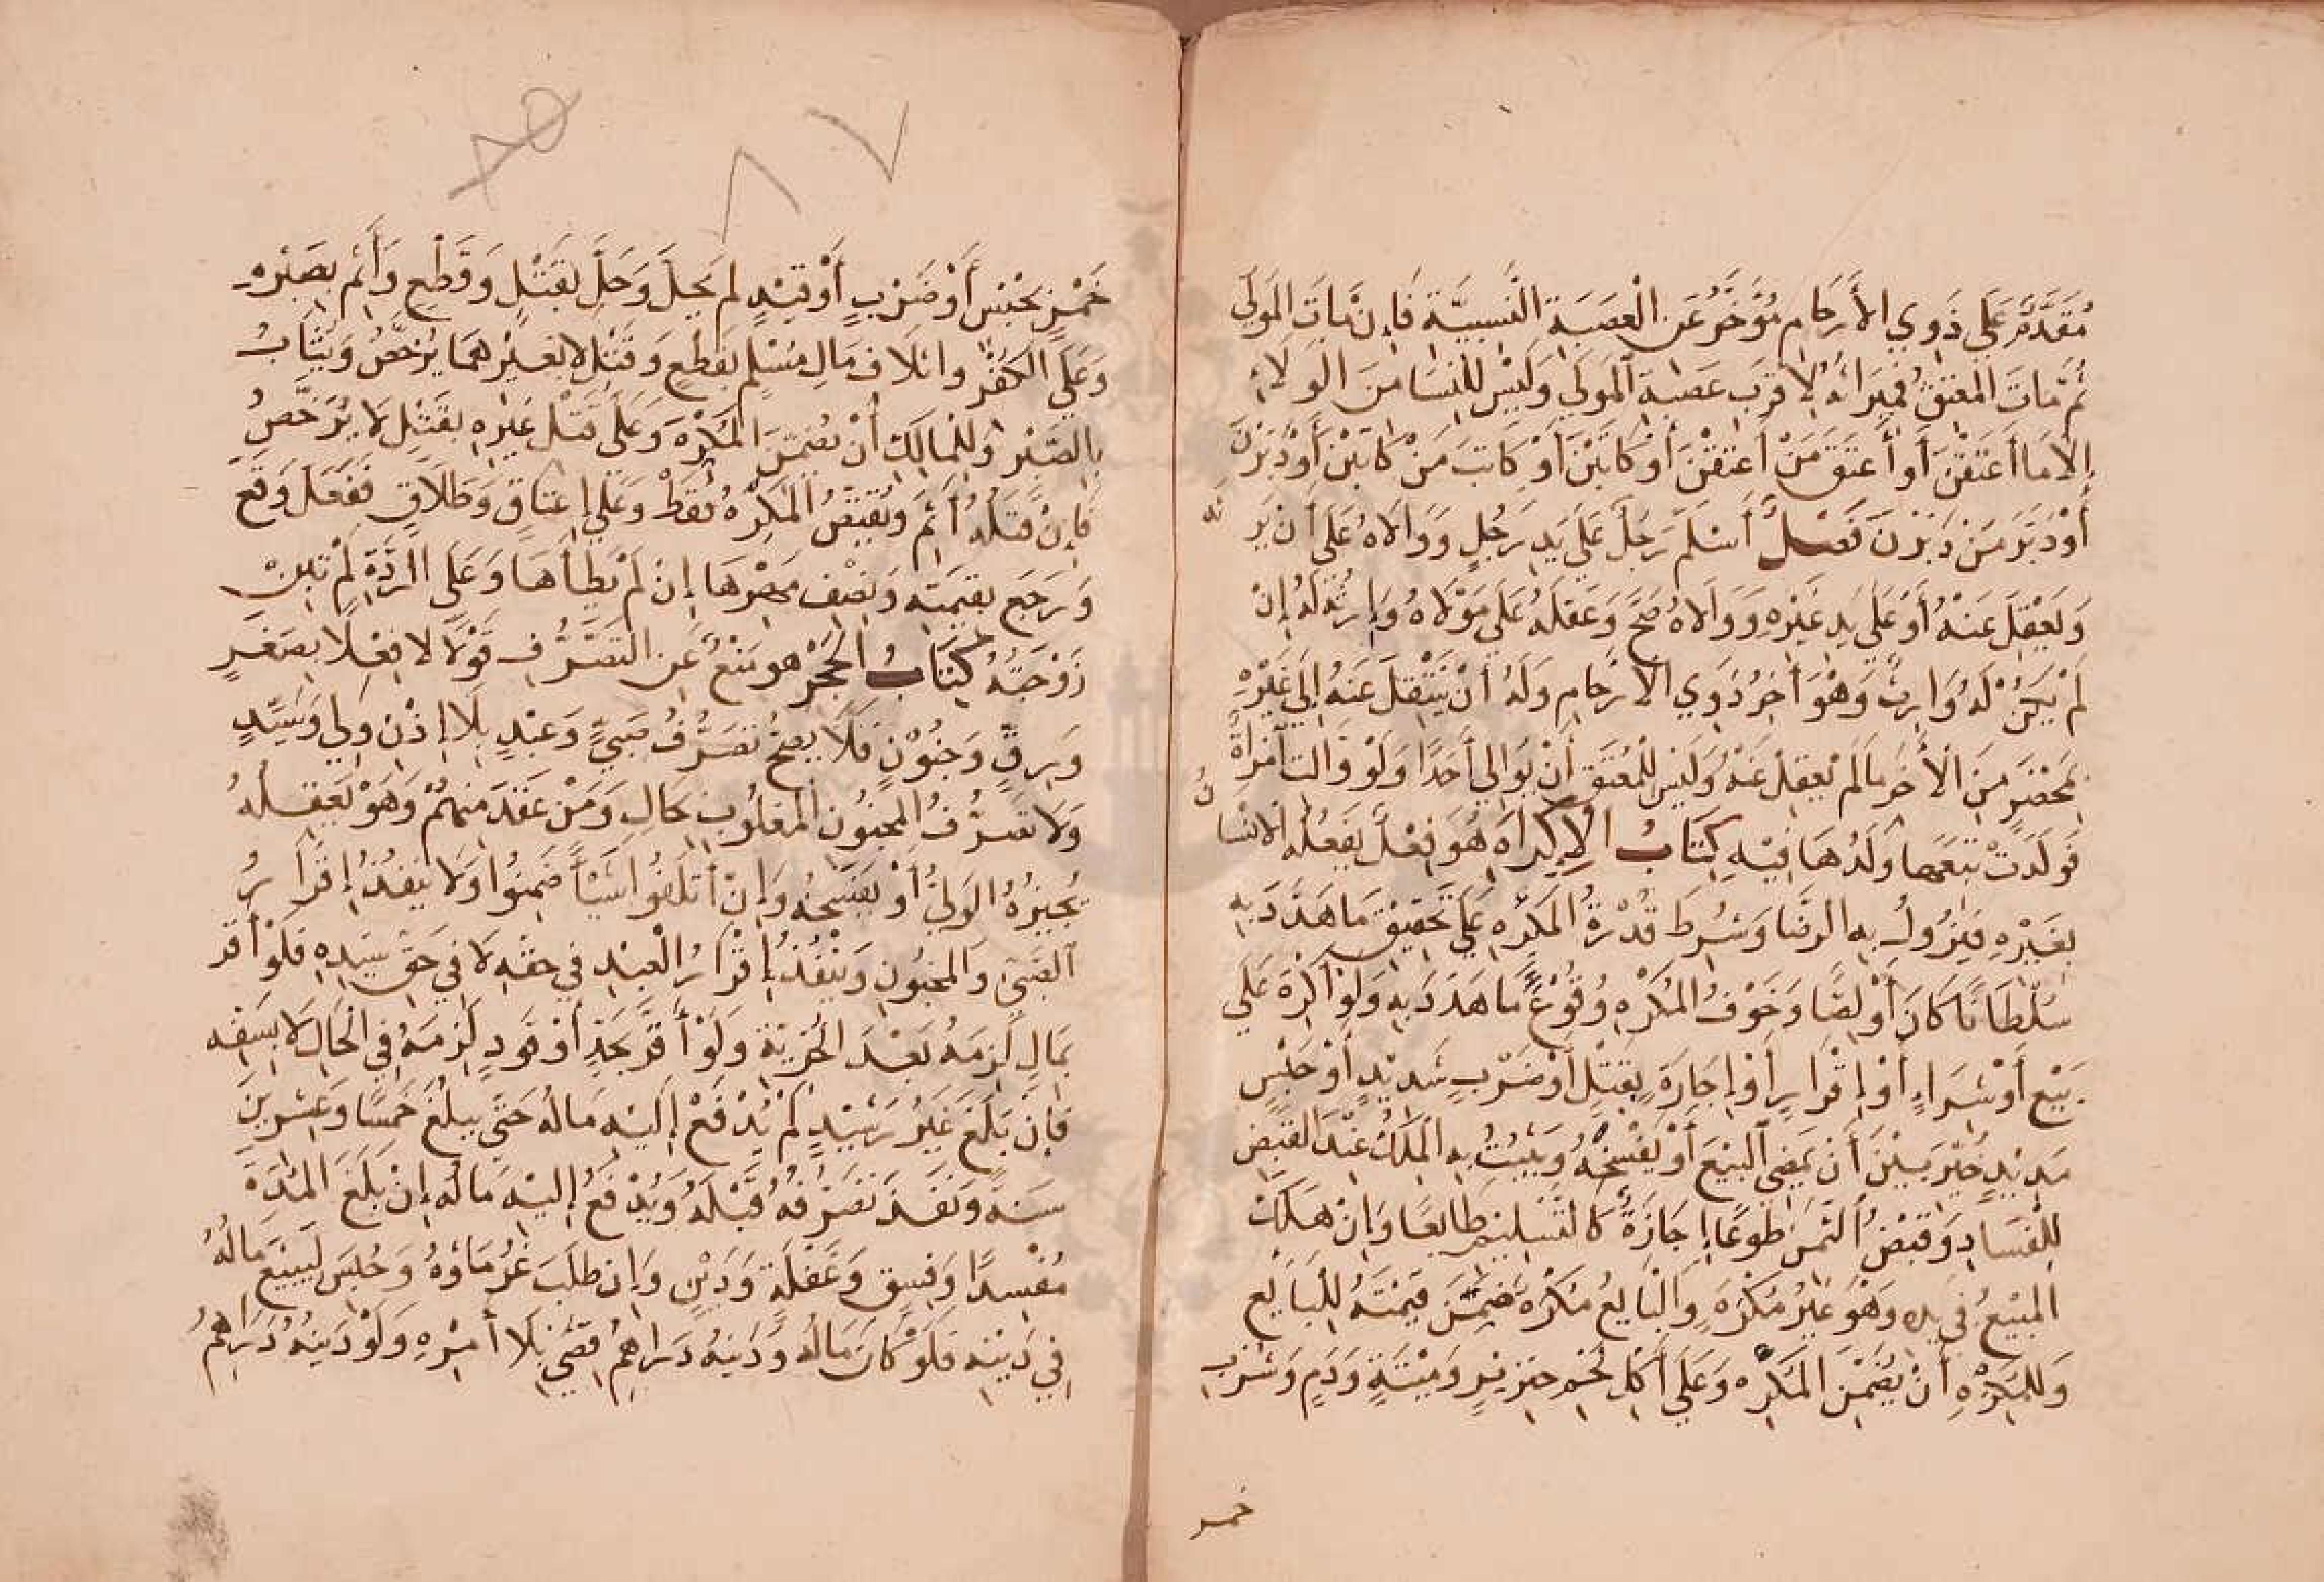 مُقَدَّمٌ عَلَى ذَوِي الأَرْحَامِ مُؤَخَّرٌ عَنِ الْعَصَبَةِ النَّسَبِيَّةِ فَإِنْ مَاتَ الْمَوْلَى
ثُمَّ مَاتَ الْمُعْتَقُ فَمِيرَاثُهُ لِأَقْرَبِ عَصَبَةِ الْمَوْلَى وَلَيْسَ لِلنِّسَا مِنَ الْوَلَاءِ
إِلَّا مَا أَعْتَقْنَ أَوْ أَعْتَقَ مَنْ أَعْتَقْنَ أَوْ كَاتَبْنَ أَوْ كَاتَبَ مَنْ كَاتَبْنَ أَوْ دَبَّرْنَ
أَوْ دَبَّرَ مَنْ دَبَّرْنَ فَصْلٌ أَسْلَمَ رَجُلٌ عَلَى يَدِ رَجُلٍ وَوَالَاهُ عَلَى أَنْ يَرِثَهُ
وَيَعْقِلَ عَنْهُ أَوْ عَلَى يَدِ غَيْرِهِ وَوَالَاهُ صَحَّ وَعَقْلُهُ عَلَى مَوْلَاهُ وَإِرْثُهُ لَهُ إِنْ
لَمْ يَكُنْ لَهُ وَارِثٌ وَهُوَ آخِرُ ذَوِي الأَرْحَامِ وَلَهُ أَنْ يَنْتَقِلَ عَنْهُ إِلَى غَيْرِهِ
بِمَحْضَرٍ مِنَ الأَخَرِ مَا لَمْ يَعْقِلْ عَنْهُ وَلَيْسَ لِلْمُعْتَقِ أَنْ يُوَالِيَ أَحَدًا وَلَوْ وَالَتِ امْرَأَةٌ
فَوَلَدَتْ تَبِعَهَا وَلَدُهَا فِيْهِ كِتَابُ الإِكْرَاهِ هُوَ فِعْلٌ يَفْعَلُهُ الإِنْسَانُ
بِغَيْرِهِ فَيَزُولُ بِهِ الرِّضَا وَشُرِطَ قُدْرَةُ الْمُكْرِهِ عَلَى تَحْقِيْقِ مَا هَدَّدَ بِهِ
سُلْطَانًا كَانَ أَوْ لِصًّا وَخَوْفُ الْمُكْرَهِ وُقُوْعَ مَا هَدَّدَ بِهِ وَلَوْ أُكْرِهَ عَلَى
بَيْعٍ أَوْ شِرَاءٍ أَوْ إِقْرَارٍ أَوْ إِجَارَةٍ بِقَتْلٍ أَوْ ضَرْبٍ شَدِيْدٍ أَوْ حَبْسٍ
مَدِيْدٍ خُيِّرَ بَيْنَ أَنْ يَمْضِيَ الْبَيْعَ أَوْ يَفْسَخَهُ وَيَثْبُتُ بِهِ الْمِلْكُ عِنْدَ الْقَبْضِ
لِلْفَسَادِ وَقَبْضُ الثَّمَنِ طَوْعًا إِجَازَةٌ كَالتَّسْلِيْمِ طَايِعًا وَإِنْ هَلَكَ
الْمَبِيْعُ فِي يَدِهِ وَهُوَ غَيْرُ مُكْرَهٍ وَالْبَايِعُ مُكْرَهٌ ضَمِنَ قِيْمَتَهُ لِلْبَايِعِ
وَلِلْمُكْرَهِ أَنْ يُضَمِّنَ الْمُكْرِهَ وَعَلَى أَكْلِ لَحْمِ خِنْزِيْرٍ وَمَيْتَةٍ وَدَمٍ وَشُرْبِ
خمر
٨٧
خَمْرٍ بِحَبْسٍ أَوْ ضَرْبٍ أَوْ قَيْدٍ لَمْ يَحِلَّ وَحَلَّ بِقَتْلٍ وَقَطْعٍ وَأَثِمَ بِصَبْرِهِ
وَعَلَى الْكُفْرِ وَاتْلَافِ مَالِ مُسْلِمٍ بِقَطْعٍ وَقَتْلٍ لَا بِغَيْرِهِمَا يُرَخَّصُ وَيُثَابُ
بِالصَّبْرِ وَلِلْمَالِكِ أَنْ يُضَمِّنَ الْمُكْرِهَ وَعَلَى قَتْلِ غَيْرِهِ بِقَتْلٍ لَا يُرَخَّصُ
فَإِنْ قَتَلَهُ أَثِمَ وَيُقْتَصُّ الْمُكْرِهُ فَقَطْ وَعَلَى إِعْتَاقٍ وَطَلَاقٍ فَفَعَلَ وَقَعَ
وَرَجَعَ بِقِيْمَتِهِ وَنِصْفِ مَهْرِهَا إِنْ لَمْ يَطَأْهَا وَعَلَى الرِّدَّةِ لَمْ تَبِنْ
زَوْجَتُهُ كِتَابُ الْحَجْرِ هُوَ مَنْعٌ عَنِ التَّصَرُّفِ قَوْلًا لَا فِعْلًا بِصِغَرٍ
وَرِقٍّ وَجُنُوْنٍ فَلَا يَصِحُّ تَصَرُّفُ صَبِيٍّ وَعَبْدٍ بِلَا إِذْنِ وَلِي وَسَيِّدٍ
وَلَا تَصَرُّفُ الْمَجْنُوْنِ الْمَغْلُوبِ بِحَالٍ وَمَنْ عَقَدَ مِنْهُمْ وَهُوَ يَعْقِلُهُ
يُجِيْزُهُ الْوَلِيُّ أَوْ يَفْسَخُهُ وَإِنْ أَتْلَفُوا شَيْأً ضَمِنُوا وَلَا يَنْفُذُ إِقْرَارُ
الصَّبِيِّ وَالْمَجْنُوْنِ وَيَنْفُذُ إِقْرَارُ الْعَبْدِ فِي حَقِّهِ لَا فِي حَقِّ سَيِّدِهِ فَلَوْ أَقَرَّ
بِمَالٍ لَزِمَهُ بَعْدَ الْحُرِّيَّةِ وَلَوْ أَقَرَّ بِحَدٍّ أَوْ قَوَدٍ لَزِمَهُ فِي الْحَالِ لَا بِسَفَهٍ
فَإِنْ بَلَغَ غَيْرَ رَشِيْدٍ لَمْ يُدْفَعْ إِلَيْهِ مَالُهُ حَتَّى يَبْلُغَ خَمْسًا وَعِشْرِيْنَ
سَنَةً وَنَفَذَ تَصَرُّفُهُ قَبْلَهُ وَيُدْفَعُ إِلَيْهِ مَالُهُ إِنْ بَلَغَ الْمُدَّةَ
مُفْسِدًا وَفِسْقٍ وَغَفْلَةٍ وَدَيْنٍ وَإِنْ طَلَبَ غُرَمَاؤُهُ وَحُبِسَ لِيَبِيْعَ مَالَهُ
فِي دَيْنِهِ فَلَوْ كَانَ مَالُهُ وَدَيْنُهُ دَرَاهِمُ قُضِيَ بِلَا أَمْرِهِ وَلَوْ دَيْنُهُ دَرَاهِمُ